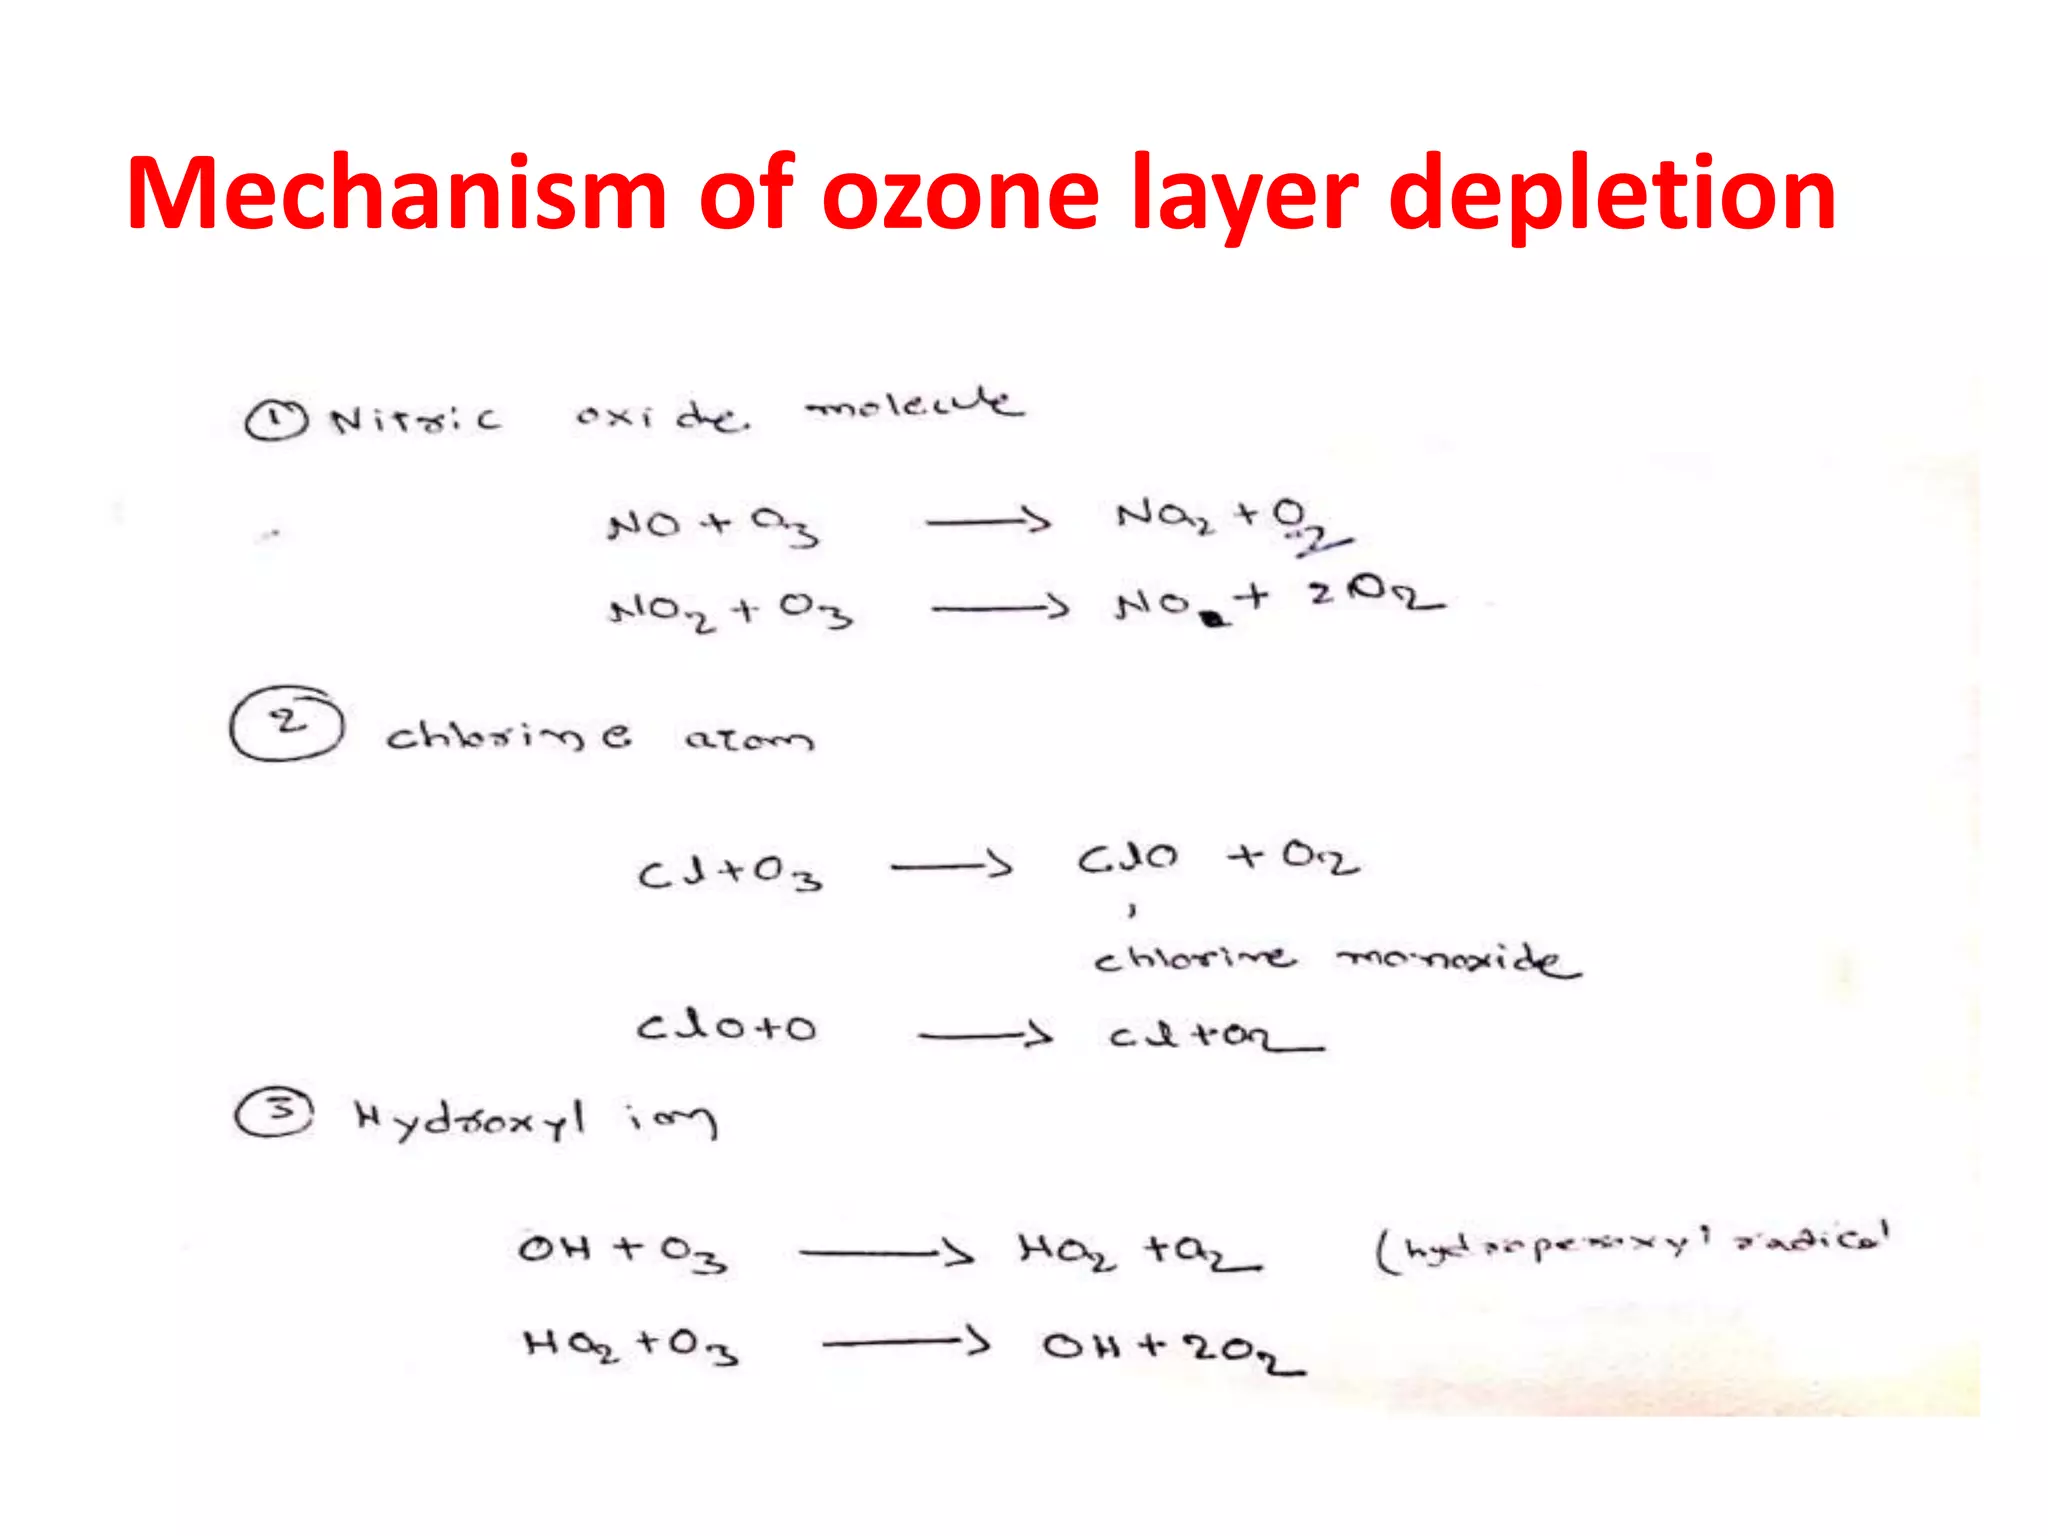 Mechanism of ozone layer depletion
① Nitric oxide molecule
NO + O₃ → NO₂ + O₂
NO₂ + O₃ → NO + 2O₂
② chlorine atom
Cl + O₃ → ClO + O₂
chlorine monoxide
ClO + O → Cl + O₂
③ Hydroxyl ion
OH + O₃ → HO₂ + O₂ (hydroperoxyl radical
HO₂ + O₃ → OH + 2O₂